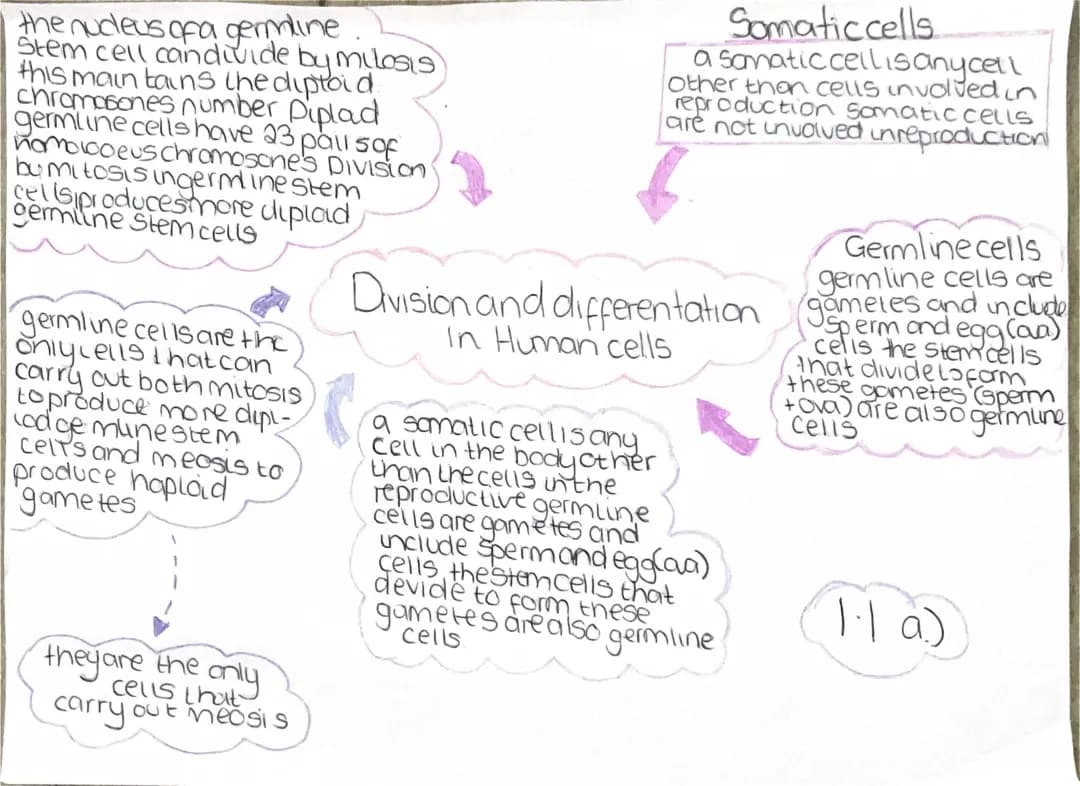 the nucleus of a germline
stem cell can divide by mitosis
this main tains the diploid
chromosones number Diploid
germline cells have 23 pairs of
homolcoeus chromosone's Division
by mitosis in germline stem
cells produces more diploid
germline stem cells
Somatic cells
a somatic cell is any cell
other than cells involved in
reproduction somatic cells
are not involved in reproduction
Division and differentation
in Human cells
Germline cells
germline cells are
gametes and include
sperm and egg (ova)
cells the stem cells
that divide to form
these gametes (sperm
+ ova) are also germline
cells
germline cells are the
only cells that can
carry out both mitosis
to produce more dipl-
iod ge mline stem
cells and meosis to
produce haploid
gametes
a somatic cell is any
cell in the body other
than the cells in the
reproductive germline
cells are gametes and
include sperm and egg (ova)
cells, the stem cells that
devide to form these
gametes are also germline
cells
1.1 a.)
they are the only
cells that
carry out meosis